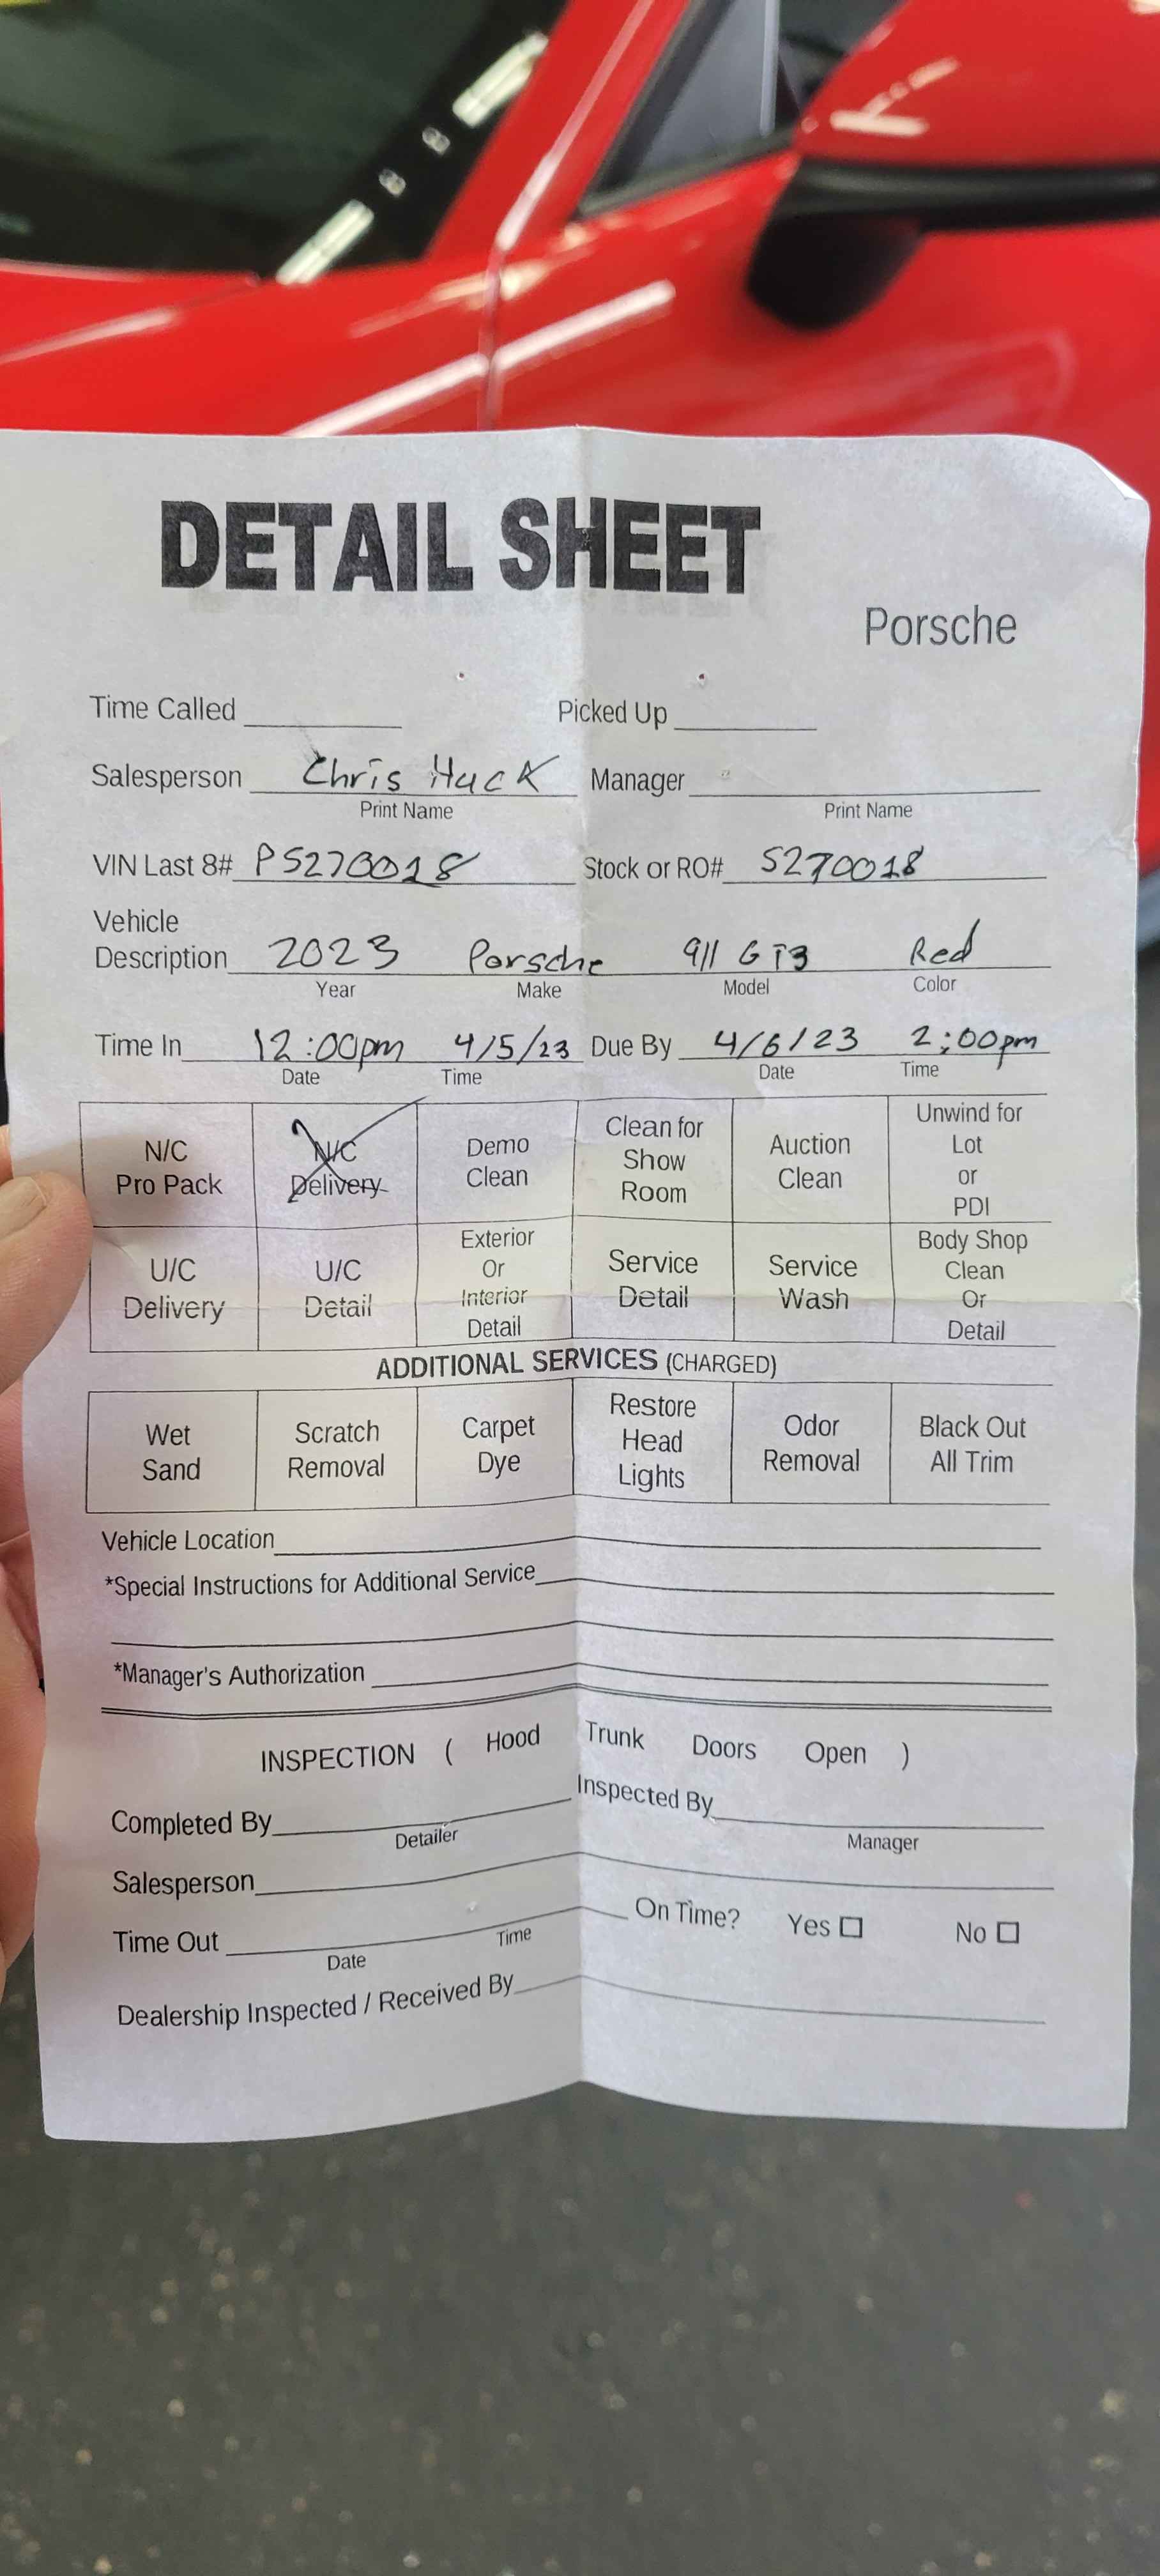 DETAIL SHEET
Porsche
Time Called Picked Up
Salesperson Chris Huck Manager
Print Name Print Name
VIN Last 8# PS270018 Stock or RO# S270018
Vehicle
Description 2023 Porsche 911 GT3 Red
Year Make Model Color
Time In 12:00pm 4/5/23 Due By 4/6/23 2:00pm
Date Time Date Time
N/C
Pro Pack
N/C
Delivery
Demo
Clean
Clean for
Show
Room
Auction
Clean
Unwind for
Lot
or
PDI
U/C
Delivery
U/C
Detail
Exterior
Or
Interior
Detail
Service
Detail
Service
Wash
Body Shop
Clean
Or
Detail
ADDITIONAL SERVICES (CHARGED)
Wet
Sand
Scratch
Removal
Carpet
Dye
Restore
Head
Lights
Odor
Removal
Black Out
All Trim
Vehicle Location
*Special Instructions for Additional Service
*Manager's Authorization
INSPECTION ( Hood Trunk Doors Open )
Completed By Inspected By
Detailer Manager
Salesperson
Time Out On Time? Yes No
Date Time
Dealership Inspected / Received By